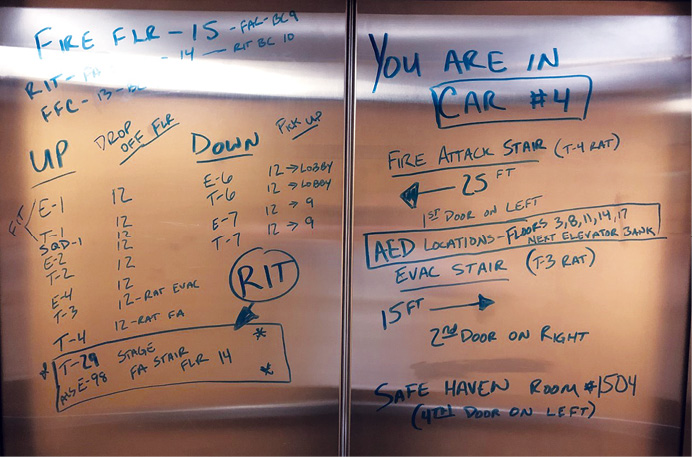 FIRE FLR - 15 - FAC - BC 9
RIT - FA - 14 - RIT BC 10
FFC - 13 -
UP
DROP OFF FLR
DOWN
PICK UP
FIT
E-1 12
T-1 12
SQD-1 12
E-2 12
T-2 12
E-4 12
T-3 12-RAT EVAC
T-4 12-RAT FA
E-6 12 → LOBBY
T-6 12 → LOBBY
E-7 12 → 9
T-7 12 → 9
RIT
* T-29 STAGE *
ALS E-98 FA STAIR FLR 14 *
YOU ARE IN
CAR #4
FIRE ATTACK STAIR (T-4 RAT)
← 25 FT
1ST DOOR ON LEFT
AED LOCATIONS - FLOORS 3,8,11,14,17
NEXT ELEVATOR BANK
EVAC STAIR (T-3 RAT)
15 FT →
2nd DOOR ON RIGHT
SAFE HAVEN ROOM #1504
(4TH DOOR ON LEFT)